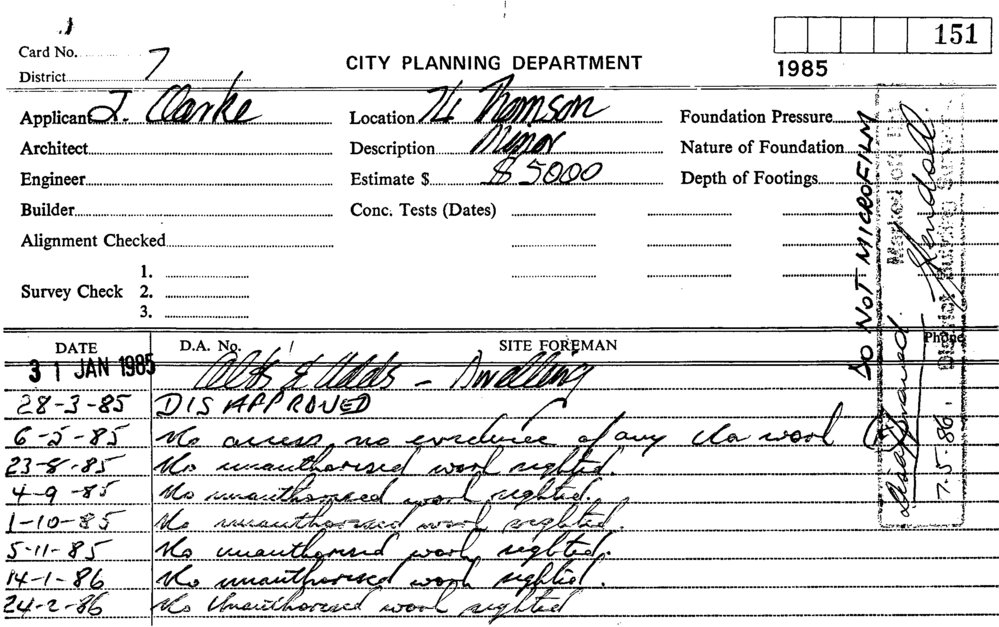 Card No.
District 7
CITY PLANNING DEPARTMENT
151
1985
Applicant J. Clarke
Location 74 Thomson
Foundation Pressure
Architect
Description Minor
Nature of Foundation
Engineer
Estimate $ $ 5000
Depth of Footings
Builder
Conc. Tests (Dates)
Alignment Checked
Survey Check
1.
2.
3.
DO NOT MICROFILM
Disapproved
7.5.86.
DATE D.A. No. SITE FOREMAN Phone
31 JAN 1985 Alts & Adds - Dwelling
28-3-85 DISAPPROVED
6-5-85 No access, no evidence of any work
23-8-85 No unauthorised work sighted.
4-9-85 No unauthorised work sighted.
1-10-85 No unauthorised work sighted.
5-11-85 No unauthorised work sighted.
14-1-86 No unauthorised work sighted.
24-2-86 No unauthorised work sighted